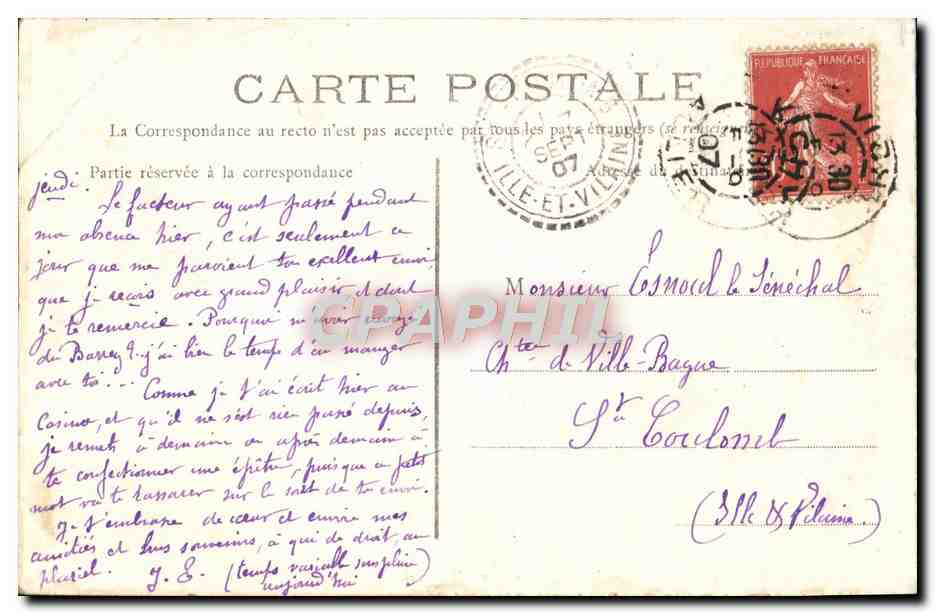 RÉPUBLIQUE FRANÇAISE
CARTE POSTALE
La Correspondance au recto n'est pas acceptée par tous les pays étrangers (se renseigner
Partie réservée à la correspondance
Adresse du destinataire
ILLE-ET-VILAINE
SEPT
07
13 30
07
jeudi. Le facteur ayant passé pendant
ma absence hier, c'est seulement ce
jour que me parvient ton excellent envoi,
que je reçois avec grand plaisir et dont
je te remercie. Pourquoi m'avoir envoyé
du ? j'ai bien le temps d'en manger
avec toi...
Comme je t'ai écrit hier au
Casino, et qu'il ne s'est rien passé depuis,
je remets à demain ou après demain à
te confectionner une épître, puisque ce petit
mot va te rassurer sur le sort de ton envoi.
Je t'embrasse de coeur et envoie mes
amitiés et bons souvenirs, à qui de droit, au
pluriel. J. E. (temps variable sans pluie
aujourd'hui)
CPAPHIL
Monsieur Esnoul le Sénéchal
Chteau de Ville-Bague
St Coulomb
(Ille & Vilaine)